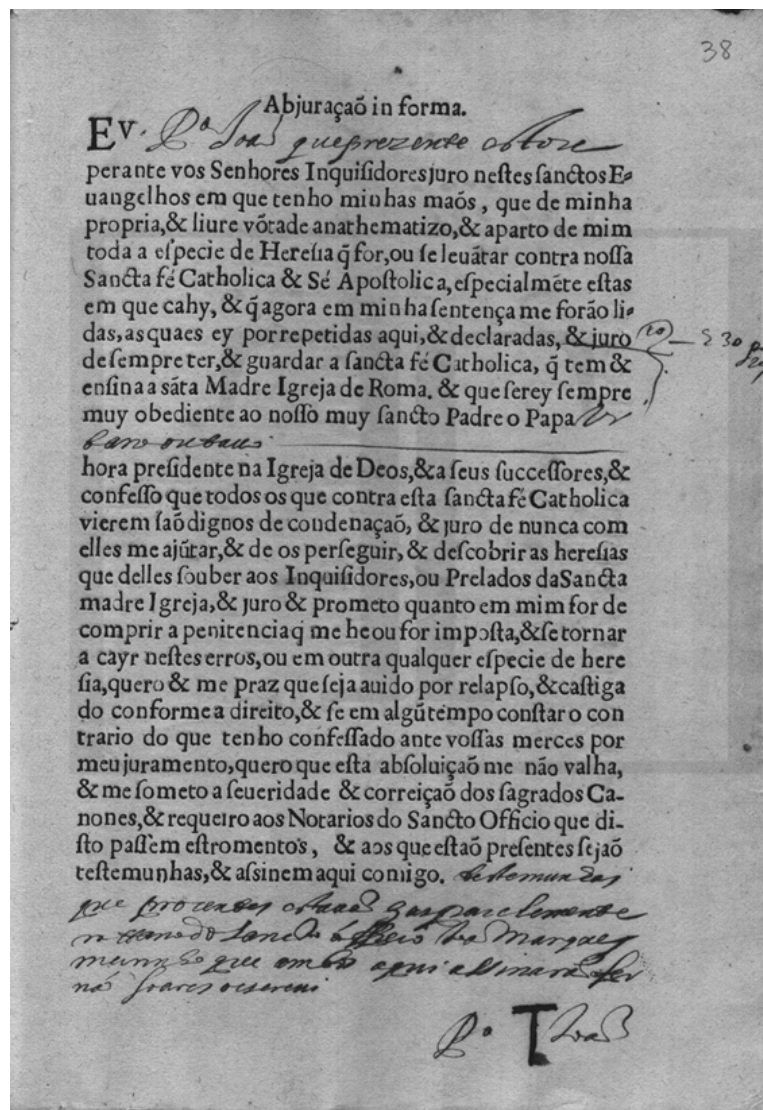 38
Abjuraçaõ in forma.
EV. Pº Joaõ que prezente estou
perante vos Senhores Inquiſidores juro neſtes ſanctos E-
uangelhos em que tenho minhas maõs, que de minha
propria, & liure võtade anathematizo, & aparto de mim
toda a eſpecie de Hereſia q̃ for, ou ſe leuãtar contra noſſa
Sancta fé Catholica & Sé Apoſtolica, eſpecialmẽte eſtas
em que cahy, & q̃ agora em minha ſentença me forão li-
das, as quaes ey por repetidas aqui, & declaradas, & juro
de ſempre ter, & guardar a ſancta fé Catholica, q̃ tem &
enſina a sãta Madre Igreja de Roma. & que ſerey ſempre
muy obediente ao noſſo muy ſancto Padre o Papa Vr
bano outauo
hora preſidente na Igreja de Deos, & a ſeus ſucceſſores, &
confeſſo que todos os que contra eſta ſancta fé Catholica
vierem ſaõ dignos de condenaçaõ, & juro de nunca com
elles me ajũtar, & de os perſeguir, & deſcobrir as hereſias
que delles ſouber aos Inquiſidores, ou Prelados da Sancta
madre Igreja, & juro & prometo quanto em mim for de
comprir a penitencia q̃ me he ou for impoſta, & ſe tornar
a cayr neſtes erros, ou em outra qualquer eſpecie de here
ſia, quero & me praz que ſeja auido por relapſo, & caſtiga
do conforme a direito, & ſe em algũ tempo conſtar o con
trario do que tenho confeſſado ante voſſas merces por
meu juramento, quero que eſta abſoluiçaõ me não valha,
& me ſometo a ſeueridade & correiçaõ dos ſagrados Ca-
nones, & requeiro aos Notarios do Sancto Officio que di-
ſto paſſem eſtromentos, & aos que eſtaõ preſentes ſejaõ
teſtemunhas, & aſsinem aqui comigo. testemunhas
que prezentes estauaõ gaspar clemente
do Sancto officio Marques
que ambos aqui assinaraõ fer
naõ soares o escreui
Pº Joaõ